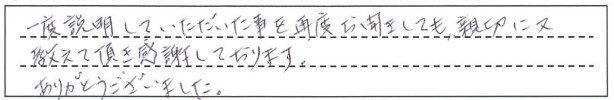 一度説明していただいた事を再度お聞きしても、親切に又
教えて頂き感謝しております。
ありがとうございました。